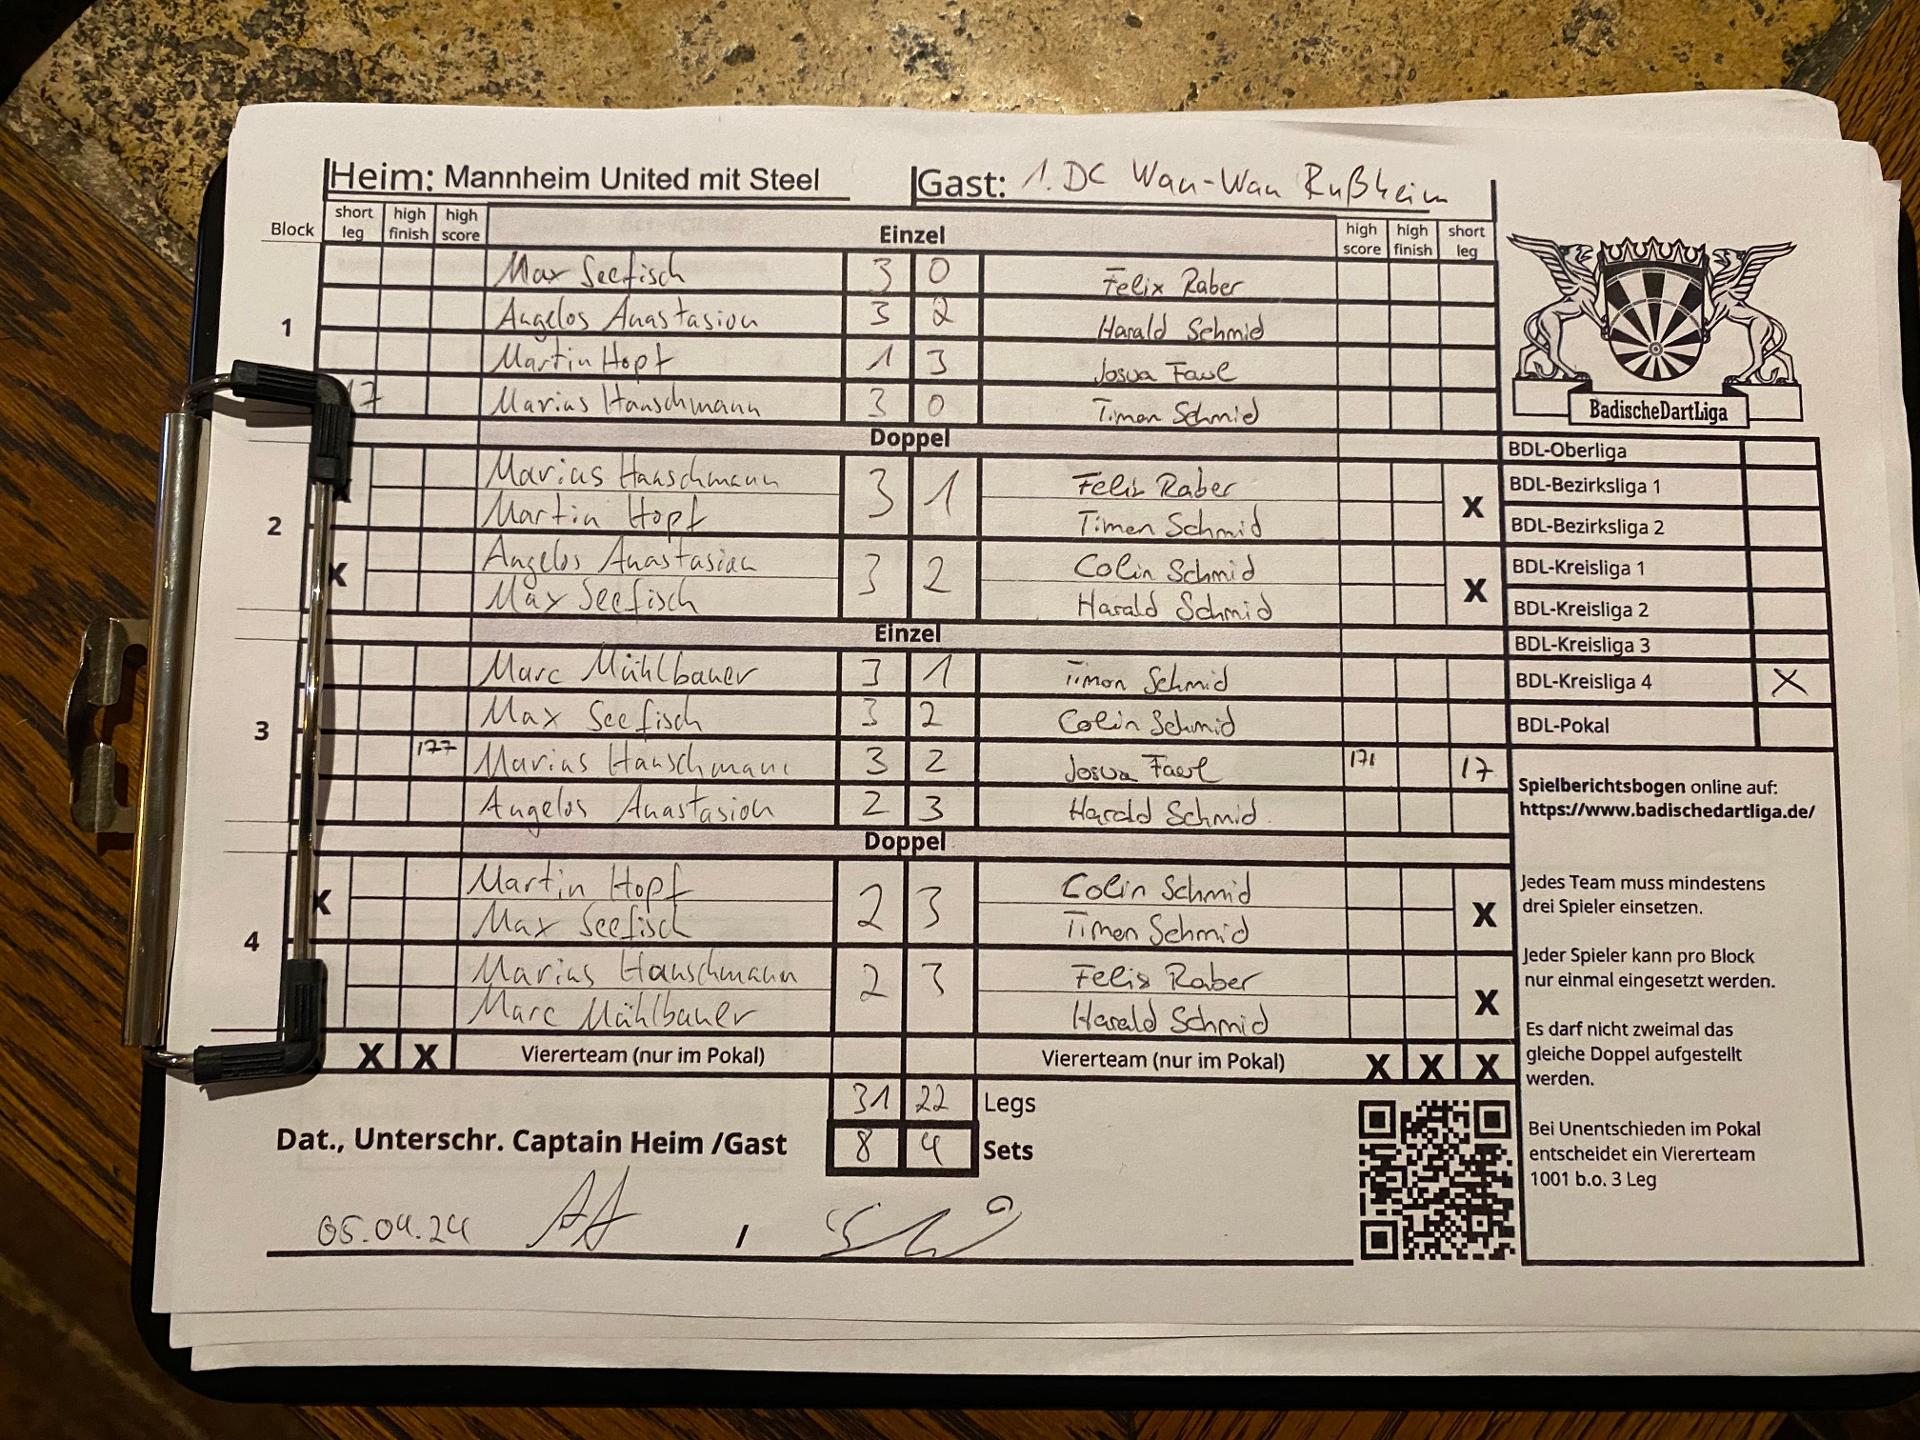 Heim: Mannheim United mit Steel Gast: 1. DC Wau-Wau Rußheim
Block short leg high finish high score Einzel high score high finish short leg
1
Max Seefisch 3 0 Felix Raber
Angelos Anastasiou 3 2 Harald Schmid
Martin Hopf 1 3 Josua Fawl
17 Marius Hauschmann 3 0 Timon Schmid
Doppel
2
Marius Hauschmann 3 1 Felix Raber X
Martin Hopf Timon Schmid
X Angelos Anastasiou 3 2 Colin Schmid X
Max Seefisch Harald Schmid
Einzel
3
Marc Mühlbauer 3 1 Timon Schmid
Max Seefisch 3 2 Colin Schmid
177 Marius Hauschmann 3 2 Josua Fawl 171 17
Angelos Anastasiou 2 3 Harald Schmid
Doppel
4
X Martin Hopf 2 3 Colin Schmid X
Max Seefisch Timon Schmid
Marius Hauschmann 2 3 Felix Raber X
Marc Mühlbauer Harald Schmid
X X Viererteam (nur im Pokal) Viererteam (nur im Pokal) X X X
31 22 Legs
Dat., Unterschr. Captain Heim /Gast 8 4 Sets
05.04.24 /
BadischeDartLiga
BDL-Oberliga
BDL-Bezirksliga 1
BDL-Bezirksliga 2
BDL-Kreisliga 1
BDL-Kreisliga 2
BDL-Kreisliga 3
BDL-Kreisliga 4 X
BDL-Pokal
Spielberichtsbogen online auf:
https://www.badischedartliga.de/
Jedes Team muss mindestens
drei Spieler einsetzen.
Jeder Spieler kann pro Block
nur einmal eingesetzt werden.
Es darf nicht zweimal das
gleiche Doppel aufgestellt
werden.
Bei Unentschieden im Pokal
entscheidet ein Viererteam
1001 b.o. 3 Leg